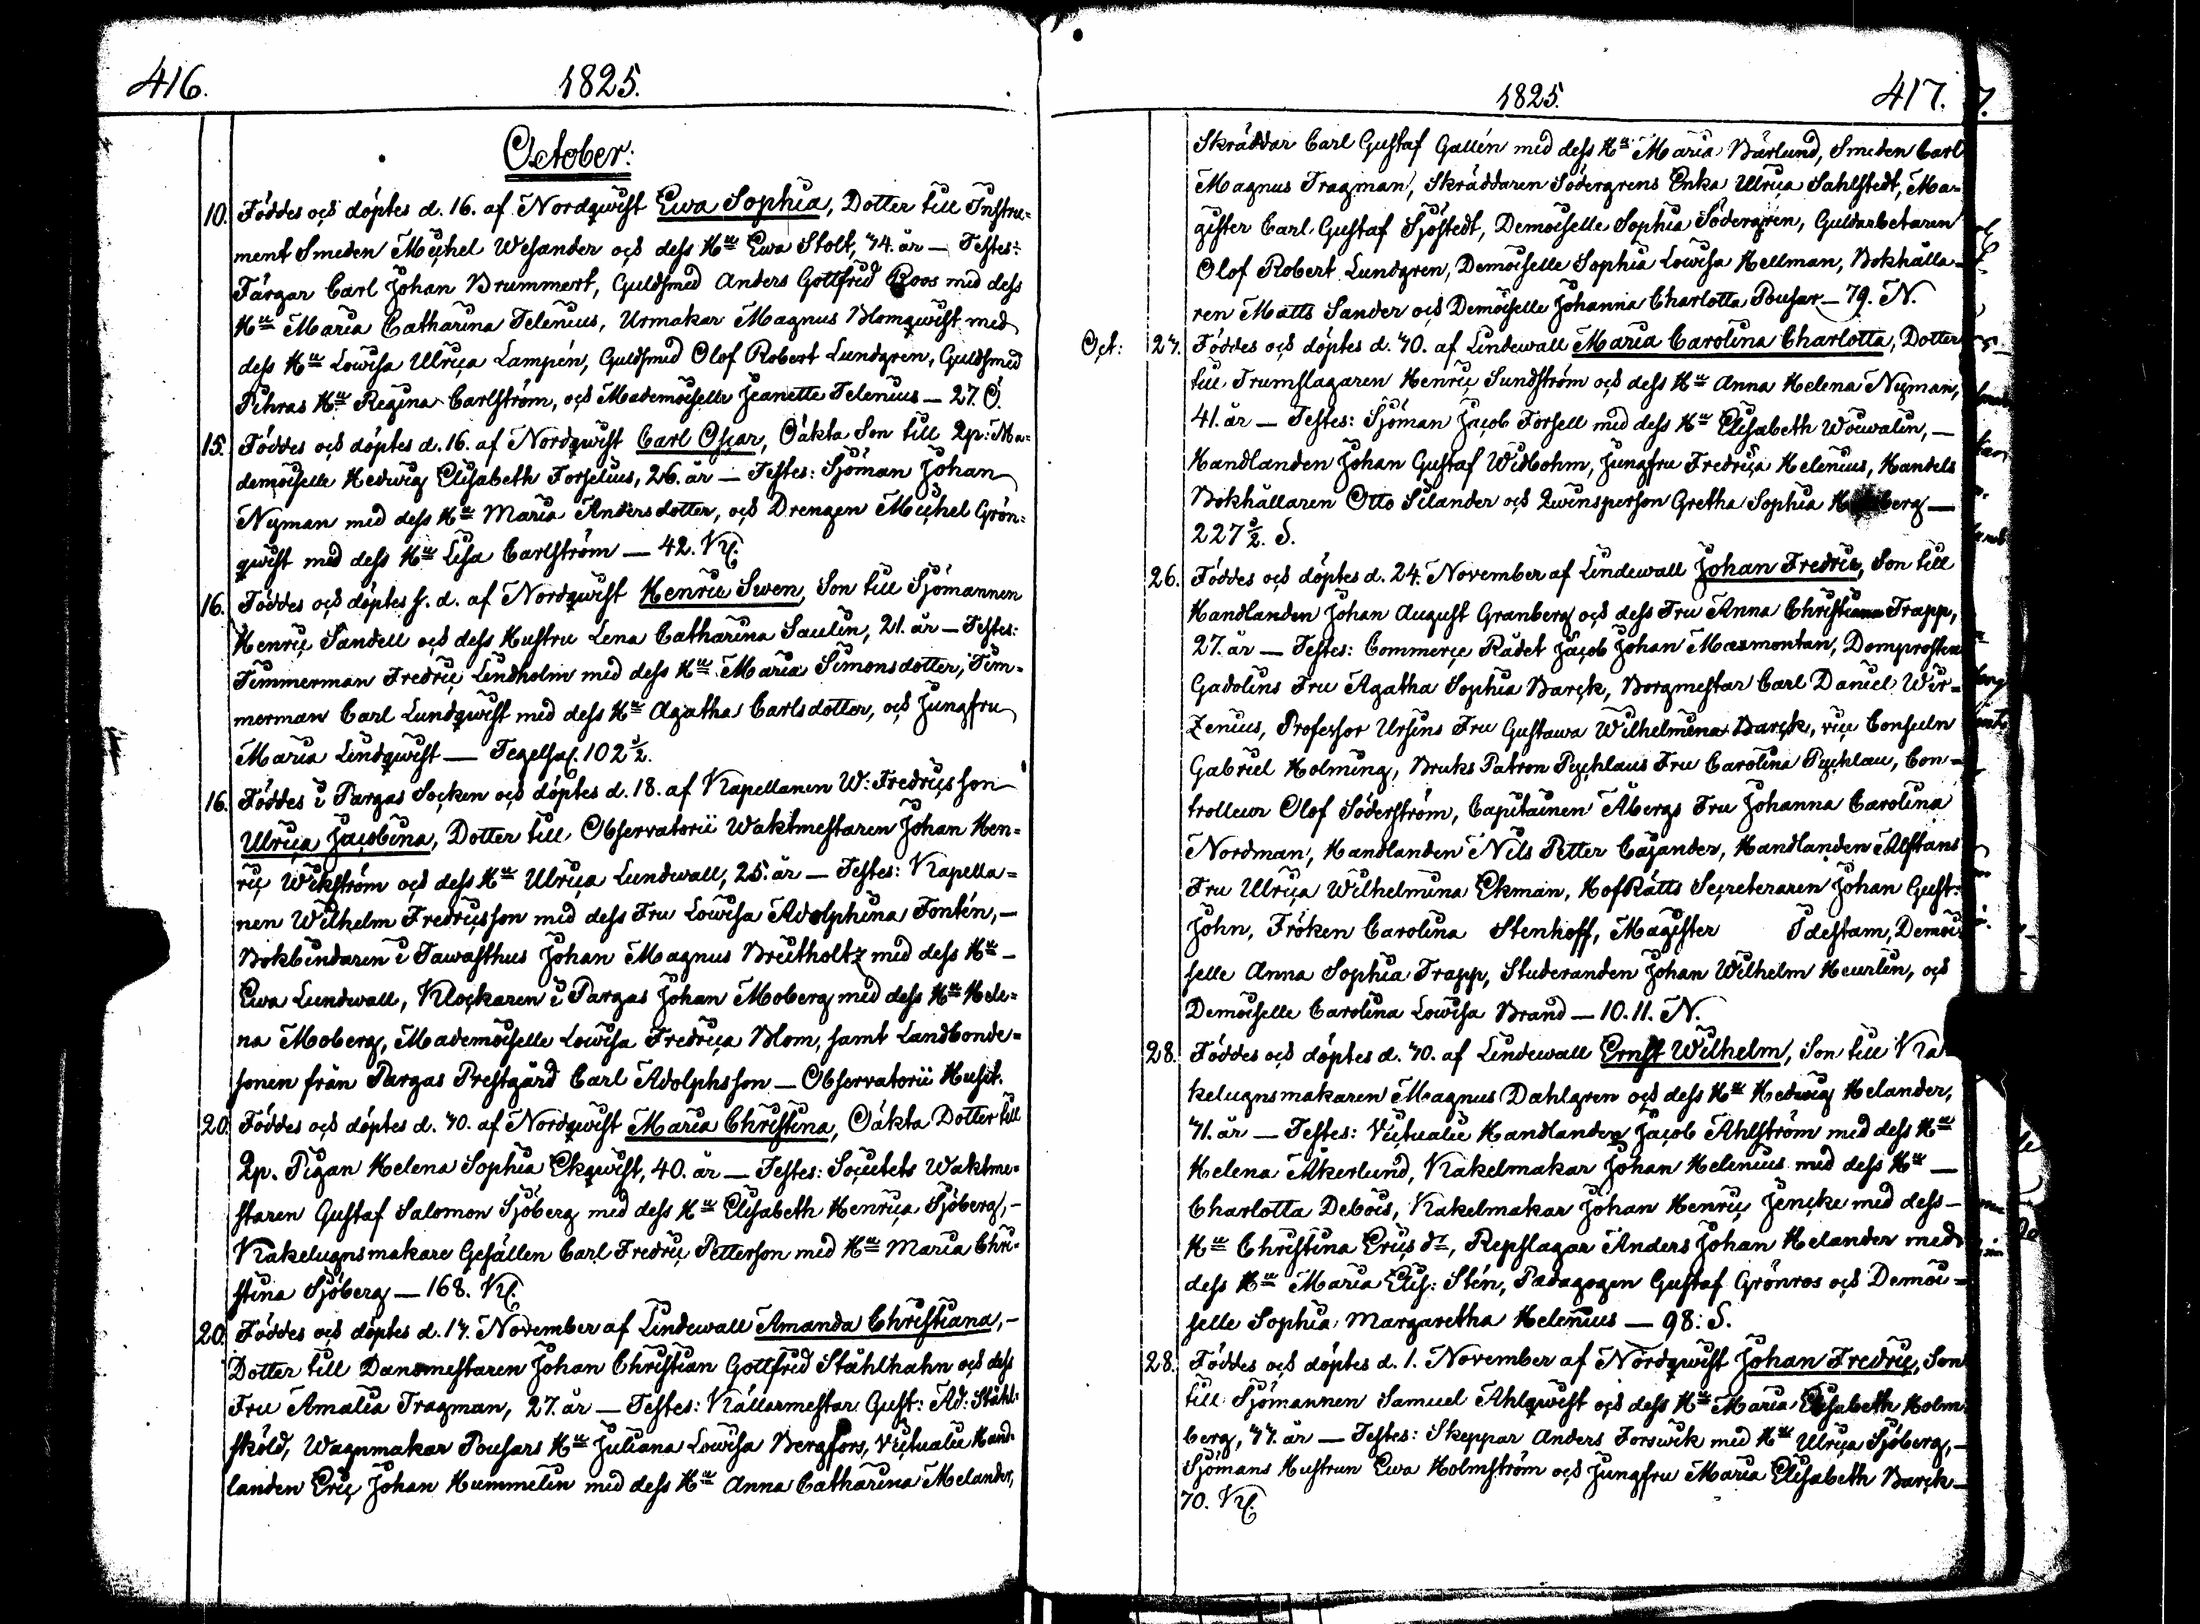 416.
1825.
October:
10. Föddes och döptes d. 16. af Nordqwist Ewa Sophia, Dotter till Instru=
ment Smeden Michel Wesander och dess Hu Ewa Stolt, 34. år — Testes:
Färgar Carl Johan Brummert, Guldsmed Anders Gottfred Roos med dess
Hu Maria Catharina Telenius, Urmakar Magnus Blomqwist med
dess Hu Lowisa Ulrica Lampén, Guldsmed Olof Robert Lundgren, Guldsmed
Pihras Hu Regina Carlström, och Mademoiselle Jeanette Telenius — 27. Ö.
15. Föddes och döptes d. 16. af Nordqwist Carl Oscar, Oäkta Son till Qp: Ma=
demoiselle Hedwig Elisabeth Forselius, 26. år — Testes: Sjöman Johan
Nyman med dess Hu Maria Andersdotter, och Drengen Michel Grön=
qwist med dess Hu Lisa Carlström — 42. Kl.
16. Föddes och döptes s. d. af Nordqwist Henric Swen, Son till Sjömannen
Henric Sandell och dess Hustru Lena Catharina Saulin, 21. år — Testes:
Timmerman Fredric Lindholm med dess Hu Maria Simonsdotter, Tim=
merman Carl Lundqwist med dess Hu Agatha Carlsdotter, och Jungfru
Maria Lindqwist — Tegelsal. 102 1/2.
16. Föddes i Pargas Socken och döptes d. 18. af Kapellanen W: Fredricsson
Ulrica Jacobina, Dotter till Observatorii Waktmestaren Johan Hen=
ric Wikström och dess Hu Ulrica Lundwall, 25. år — Testes: Kapella=
nen Wilhelm Fredricsson med dess Fru Lowisa Adolphina Fontén, —
Bokbindaren i Tawasthus Johan Magnus Breitholtz med dess Hu —
Ewa Lundwall, Klockaren i Pargas Johan Moberg med dess Hu Hele=
na Moberg, Mademoiselle Lowisa Fredrica Blom, samt Landbonde=
sonen från Pargas Prestgård Carl Adolphsson — Observatorii Huset.
20. Föddes och döptes d. 30. af Nordqwist Maria Christina, Oäkta Dotter till
Qp. Pigan Helena Sophia Ekqwist, 40. år — Testes: Societets Waktme=
staren Gustaf Salomon Sjöberg med dess Hu Elisabeth Henrica Sjöberg, —
Kakelugnsmakare Gesällen Carl Fredric Petterson med Hu Maria Chri=
stina Sjöberg — 168. Kl.
20. Föddes och döptes d. 13. November af Lindewall Amanda Christiana, —
Dotter till Dansmestaren Johan Christian Gottfred Ståhlhahn och dess
Fru Amalia Tragman, 27. år — Testes: Källarmestar Gust: Ad: Ståhl=
sköld, Wagnmakar Pousars Hu Juliana Lowisa Bergfors, Victualie Hand=
landen Eric Johan Hummelin med dess Hu Anna Catharina Melander,
1825.
417.
Skräddar Carl Gustaf Gallén med dess Hu Maria Bärlund, Smeden Carl
Magnus Tragman, Skräddaren Södergrens Enka Ulrica Sahlstedt, Ma=
gister Carl Gustaf Sjöstedt, Demoiselle Sophia Södergren, Guldarbetaren
Olof Robert Lundgren, Demoiselle Sophia Lowisa Hellman, Bokhålla=
ren Matts Sander och Demoiselle Johanna Charlotta Pousar — 79. N.
Oct: 23. Föddes och döptes d. 30. af Lindewall Maria Carolina Charlotta, Dotter
till Trumslagaren Henric Sundström och dess Hu Anna Helena Nyman,
41. år — Testes: Sjöman Jacob Forsell med dess Hu Elisabeth Wouwalin, —
Handlanden Johan Gustaf Widbohm, Jungfru Fredrica Helenius, Handels
Bokhållaren Otto Silander och Qwinsperson Gretha Sophia —
227 1/2. S.
26. Föddes och döptes d. 24. November af Lindewall Johan Fredric, Son till
Handlanden Johan August Granberg och dess Fru Anna Christiana Trapp,
27. år — Testes: Commerce Rådet Jacob Johan Maxmontan, Domprosten
Gadolins Fru Agatha Sophia Barck, Borgmestar Carl Daniel Wir=
zenius, Professor Ursins Fru Gustawa Wilhelmina Barck, vice Consuln
Gabriel Holming, Bruks Patron Pychlaus Fru Carolina Pychlau, Con=
trolleur Olof Söderström, Capitainen Åbergs Fru Johanna Carolina
Nordman, Handlanden Nils Petter Cajander, Handlanden Alftans
Fru Ulrica Wilhelmina Ekman, HofRätts Secreteraren Johan Gust:
John, Fröken Carolina Stenhoff, Magister Idestam, Demoi
selle Anna Sophia Trapp, Studeranden Johan Wilhelm Heurlin, och
Demoiselle Carolina Lowisa Brand — 10. 11. N.
28. Föddes och döptes d. 30. af Lindewall Ernst Wilhelm, Son till Ka
kelugnsmakaren Magnus Dahlgren och dess Hu Hedwig Helander,
31. år — Testes: Victualie Handlanden Jacob Ahlström med dess Hu
Helena Åkerlund, Kakelmakar Johan Helenius med dess Hu —
Charlotta Debois, Kakelmakar Johan Henric Jencke med dess —
Hu Christina Erics dr, Repslagar Anders Johan Helander med
dess Hu Maria Elis: Stén, Pædagogen Gustaf Grönros och Demoi=
selle Sophia Margaretha Helenius — 98. S.
28. Föddes och döptes d. 1. November af Nordqwist Johan Fredric, Son
till Sjömannen Samuel Ahlqwist och dess Hu Maria Elisabeth Holm
berg, 33. år — Testes: Skeppar Anders Forswik med Hu Ulrica Sjöberg, —
Sjömans Hustrun Ewa Holmström och Jungfru Maria Elisabeth Barck —
70. Kl.